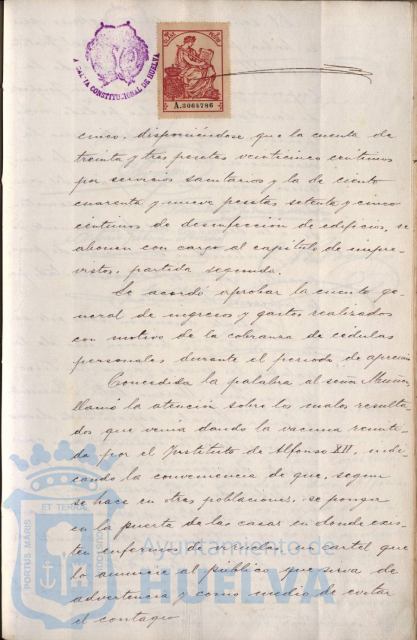 ALCALDIA CONSTITUCIONAL DE HUELVA
A.3064786
cinco, disponiéndose que la cuenta de
treinta y tres pesetas veinticinco céntimos
por servicios sanitarios y la de ciento
cuarenta y nueve pesetas setenta y cinco
céntimos de desinfección de edificios, se
abonen con cargo al capítulo de impre-
vistos, partida segunda.
Se acordó aprobar la cuenta ge-
neral de ingresos y gastos realizados
con motivo de la cobranza de cédulas
personales durante el periodo de apremio
Concedida la palabra al señor Muñoz,
llamó la atención sobre los malos resulta-
dos que venía dando la vacuna remiti-
da por el Instituto de Alfonso XII, indi-
cando la conveniencia de que, segun
se hace en otras poblaciones, se ponga
en la puerta de las casas en donde exis-
tan enfermos de viruelas un cartel que
lo anuncie al público que sirva de
advertencia y como medio de evitar
el contagio
PORTUS MARIS ET TERRAE CUSTODIA
Ayuntamiento de
HUELVA